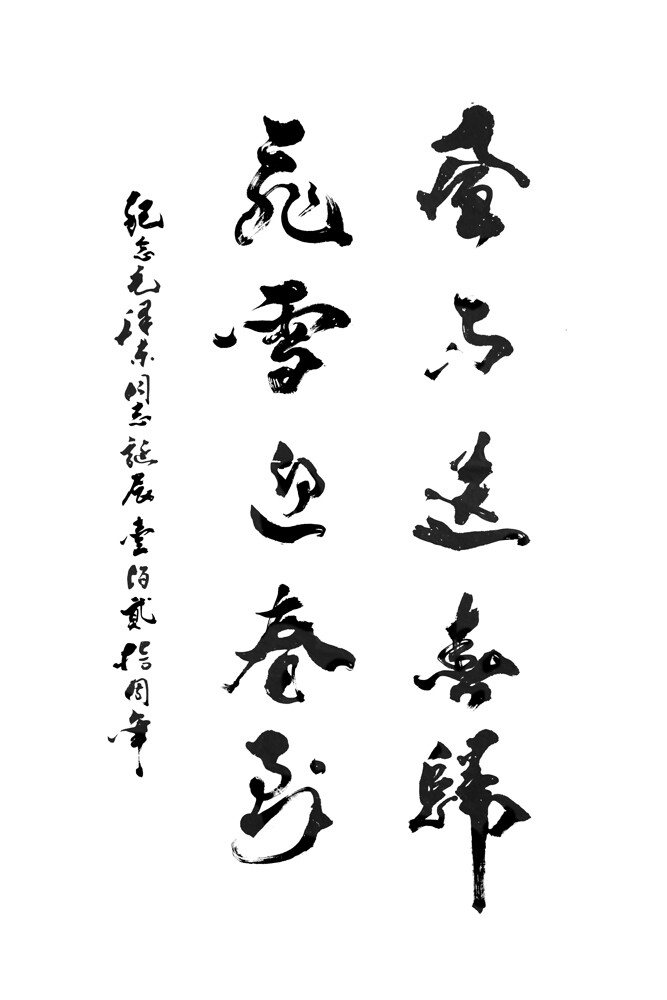 風雨送春歸
飛雪迎春到
紀念毛澤東同志誕辰壹佰貳拾周年